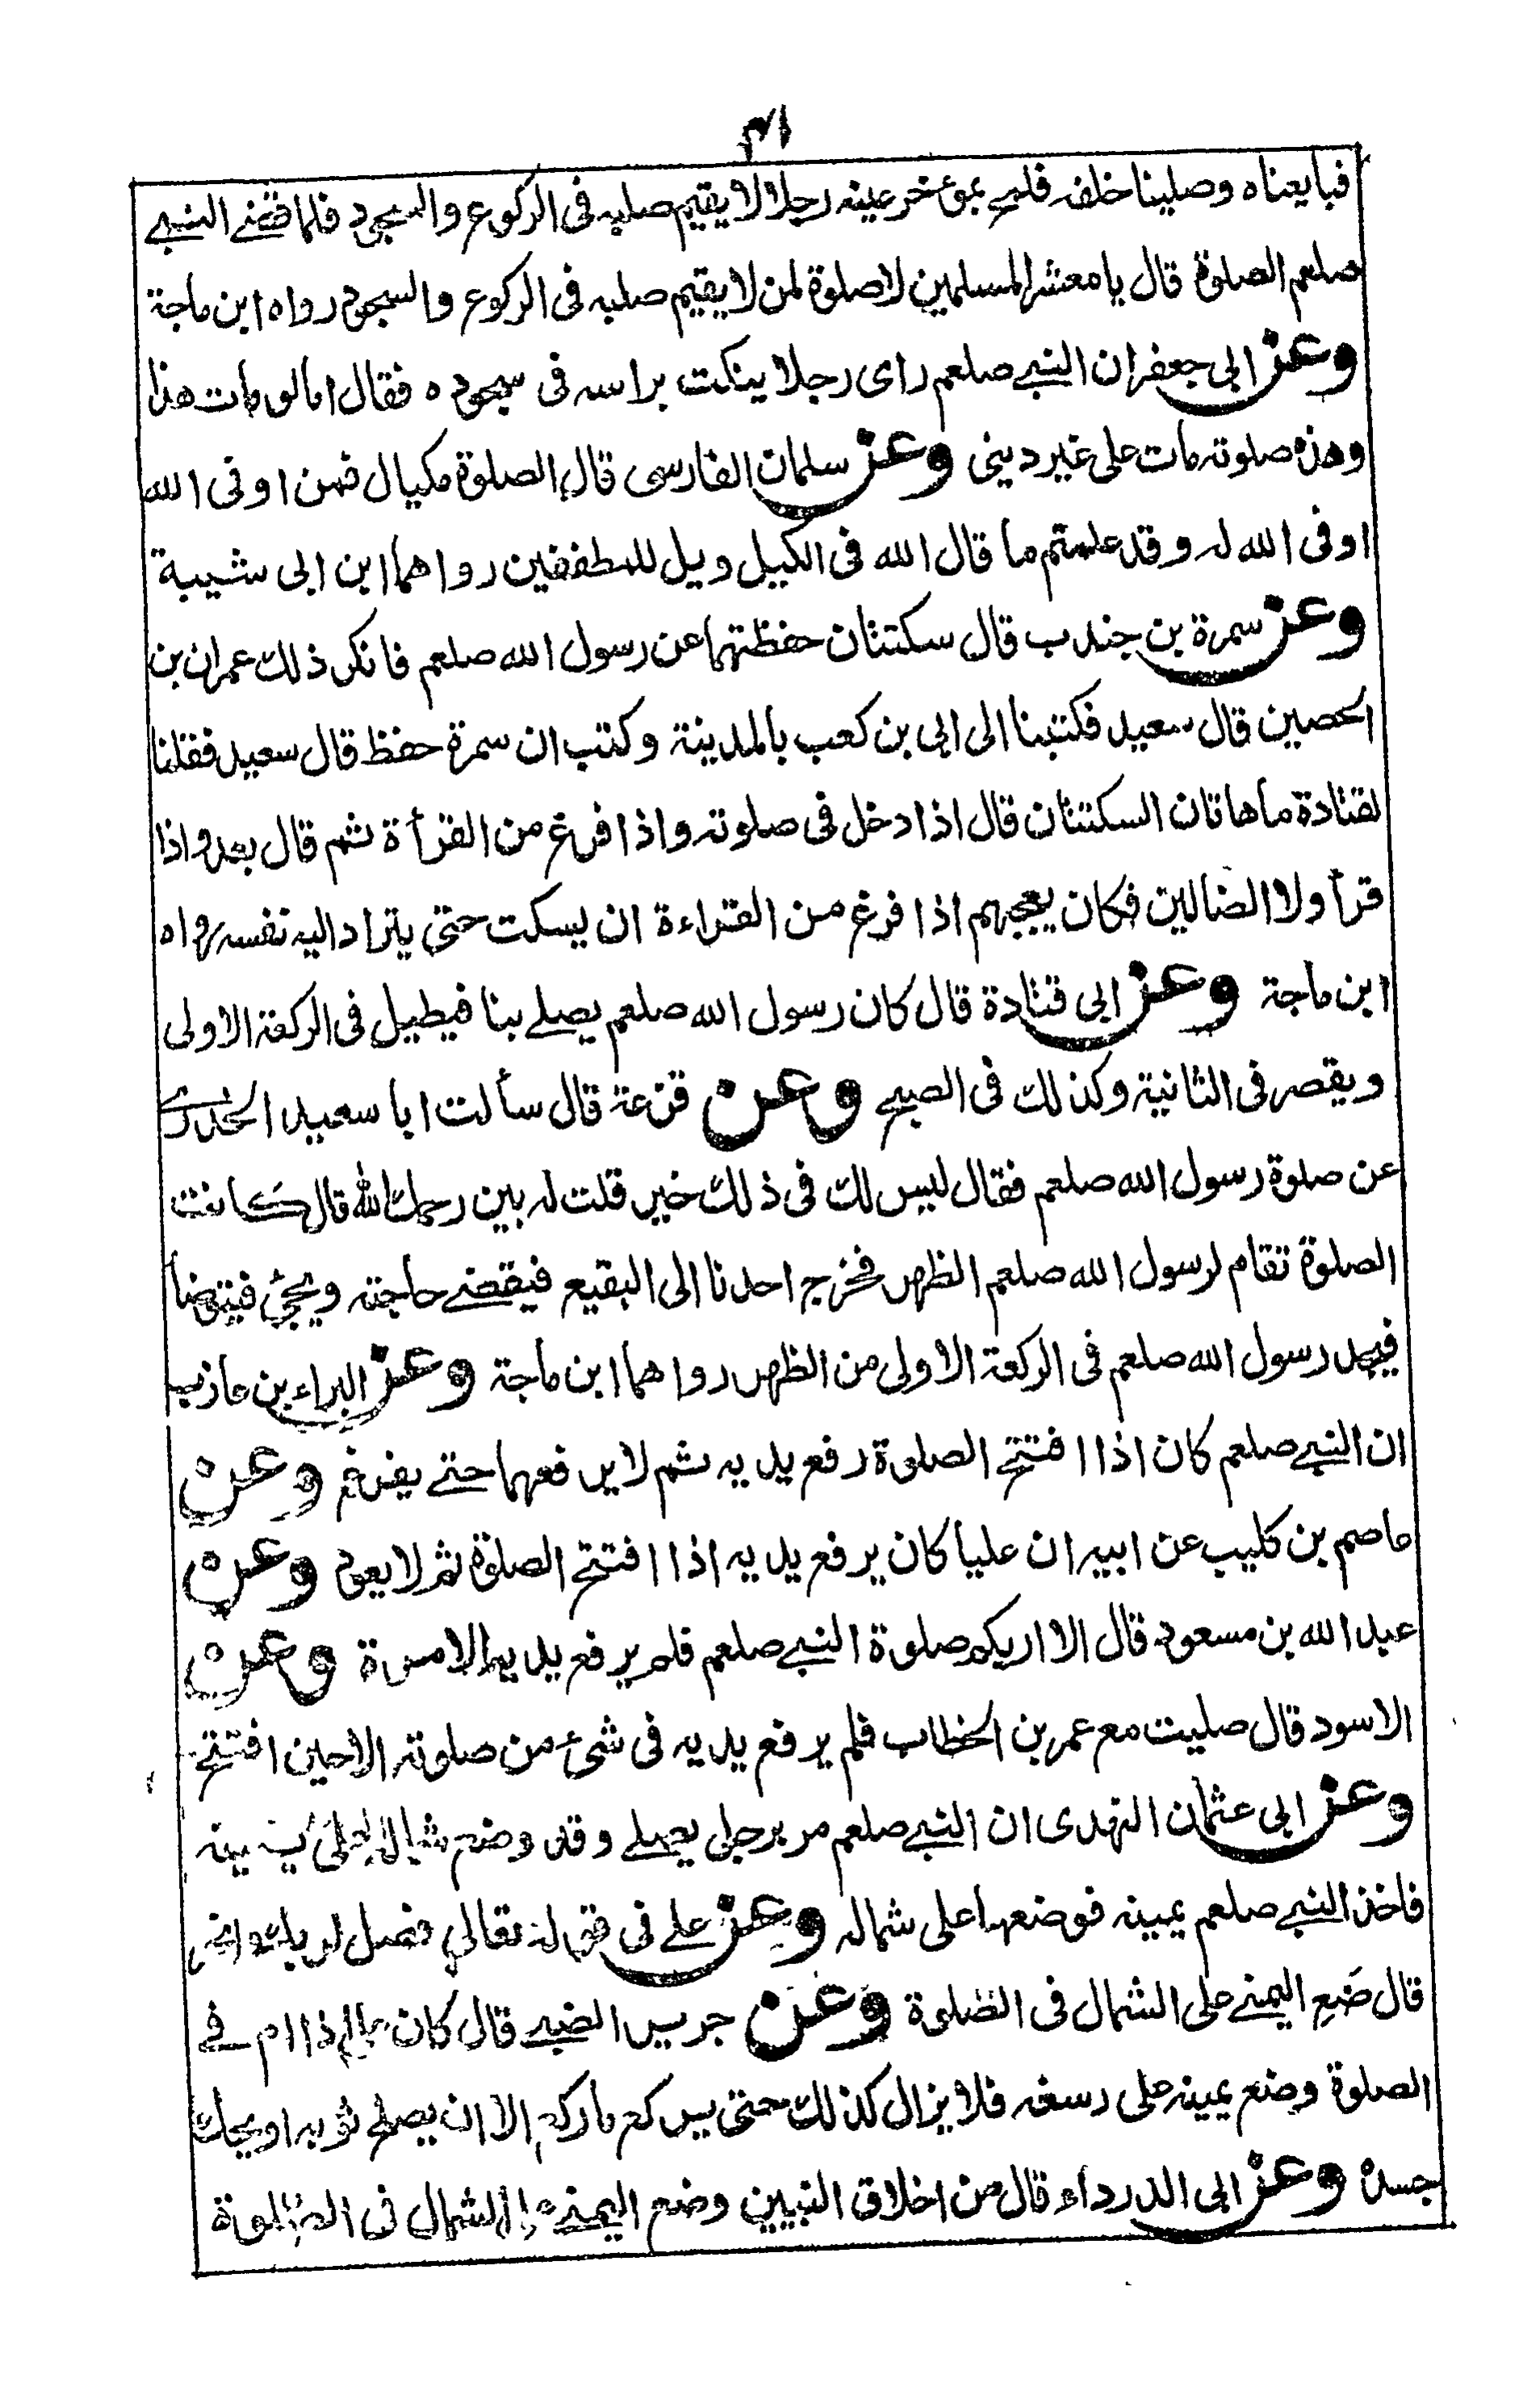 ٣١
فبايعناه وصلينا خلفه فلمح بمؤخر عينه رجلا لا يقيم صلبه فى الركوع والسجود فلما قضے النبے
صلعم الصلوة قال يا معشر المسلمين لا صلوة لمن لا يقيم صلبه فى الركوع والسجود رواه ابن ماجة
وعن ابى جعفر ان النبے صلعم راى رجلا ينكت براسه فى سجوده فقال امالو مات هذا
وهذه صلوته مات على غير دينى وعن سلمان الفارسى قال الصلوة مكيال فمن اوفى الله
اوفى الله له وقد علمتم ما قال الله فى الكيل ويل للمطففين رواهما ابن ابى شيبة
وعن سمرة بن جندب قال سكتتان حفظتهما عن رسول الله صلعم فانكر ذلك عمران بن
الحصين قال سعيد فكتبنا الى ابى بن كعب بالمدينة وكتب ان سمرة حفظ قال سعيد فقلنا
لقتادة ما هاتان السكتتان قال اذا دخل فى صلوته واذا فرغ من القرأة ثم قال بعد واذا
قرأ ولا الضالين فكان يعجبهم اذا فرغ من القراءة ان يسكت حتى يتراد اليه نفسه رواه
ابن ماجة وعن ابى قتادة قال كان رسول الله صلعم يصلے بنا فيطيل فى الركعة الاولى
ويقصر فى الثانية وكذلك فى الصبح وعن قزعة قال سألت ابا سعيد الخدرے
عن صلوة رسول الله صلعم فقال ليس لك فى ذلك خير قلت له بين رحمك الله قال كانت
الصلوة تقام لرسول الله صلعم الظهر فخرج احدنا الى البقيع فيقضے حاجته ويجئ فيتوضأ
فيجد رسول الله صلعم فى الركعة الاولى من الظهر رواهما ابن ماجة وعن البراء بن عازب
ان النبے صلعم كان اذا افتتح الصلوة رفع يديه ثم لا يرفعهما حتے يفرغ وعن
عاصم بن كليب عن ابيه ان عليا كان يرفع يديه اذا افتتح الصلوة ثم لا يعود وعن
عبد الله بن مسعود قال الا اريكم صلوة النبے صلعم فلم يرفع يديه الا مرة وعن
الاسود قال صليت مع عمر بن الخطاب فلم يرفع يديه فى شئ من صلوته الا حين افتتح
وعن ابى عثمان النهدى ان النبے صلعم مر برجل يصلے وقد وضع شماله على يمينه
فاخذ النبے صلعم يمينه فوضعها على شماله وعن علے فى قوله تعالى فصل لربك وانحر
قال ضع اليمنے على الشمال فى الصلوة وعن جرير الضبے قال كان علے اذا ام فے
الصلوة وضع يمينه على رسغه فلا يزال كذلك حتى يركع ماركع الا ان يصلح ثوبه او يحك
جسده وعن ابى الدرداء قال من اخلاق النبيين وضع اليمنے الشمال فى الصلوة